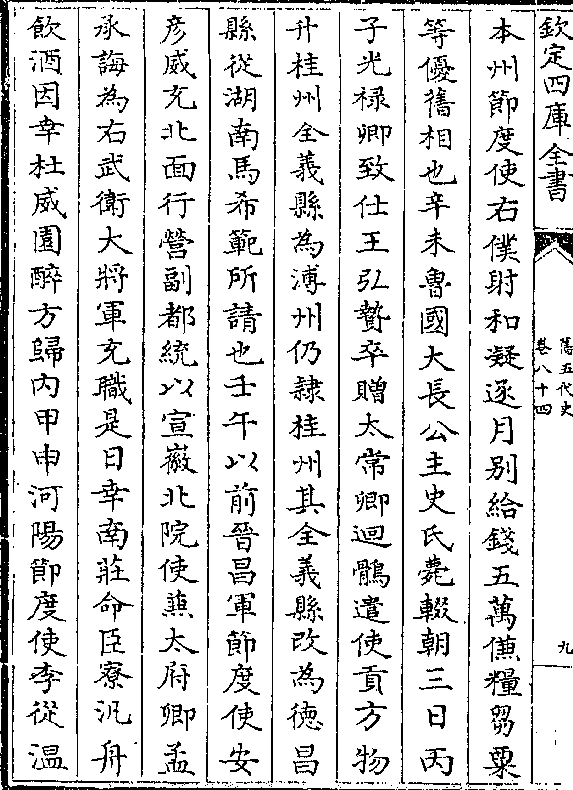 欽定四庫全書
舊五代史
卷八十四
九
本州節度使右僕射和凝逐月别給錢五萬傔糧芻粟
等優舊相也辛未魯國大長公主史氏薨輟朝三日丙
子光禄卿致仕王弘贄卒贈太常卿迴鶻遣使貢方物
升桂州全義縣為溥州仍隸桂州其全義縣改為徳昌
縣從湖南馬希範所請也壬午以前晉昌軍節度使安
彦威充北面行營副都統以宣徽北院使兼太府卿孟
承誨為右武衛大將軍充職是日幸南莊命臣寮汎舟
飲酒因幸杜威園醉方歸内甲申河陽節度使李從温